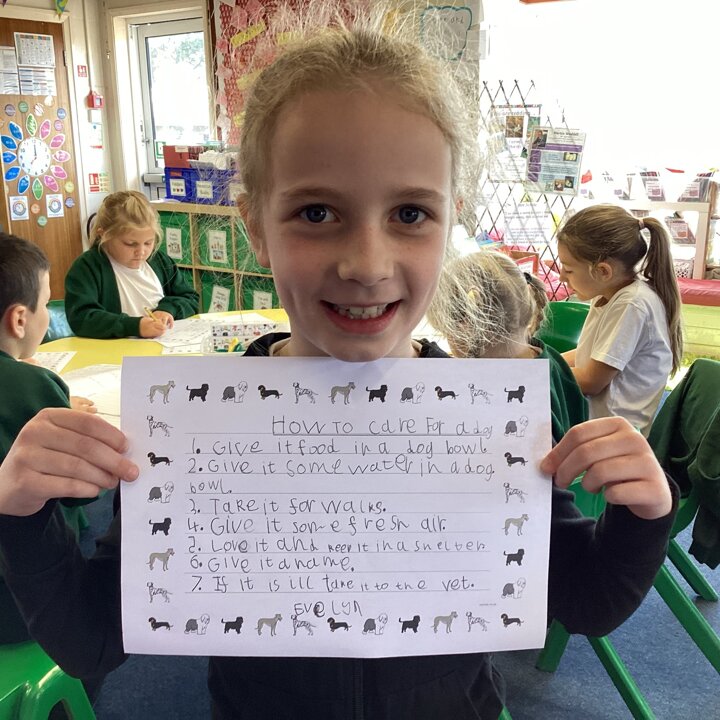 How to care for a dog
1. Give it food in a dog bowl.
2. Give it some water in a dog
bowl.
3. Take it for walks.
4. Give it some fresh air.
5. Love it and keep it in a shelter.
6. Give it a name.
7. If it is ill take it to the vet.
Evelyn